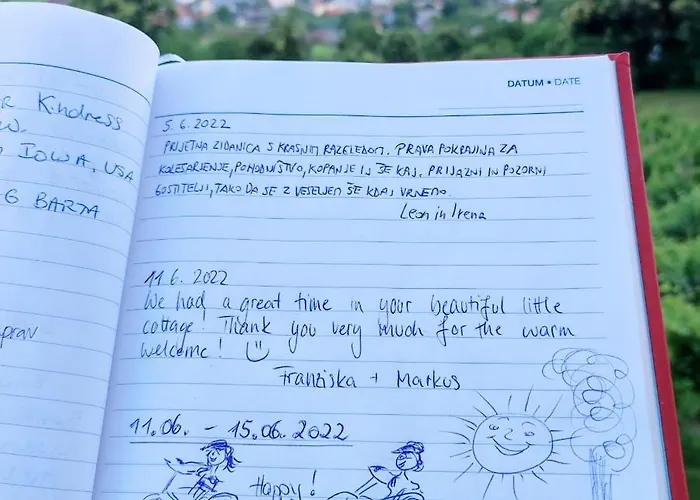 Kindness
IOWA, USA
G BARTA
DATUM • DATE
5.6.2022
PRIJETNA ZIDANICA S KRASNIM RAZGLEDOM. PRAVA POKRAJINA ZA
KOLESARJENJE, POHODNIŠTVO, KOPANJE IN ŠE KAJ. PRIJAZNI IN POZORNI
GOSTITELJI, TAKO DA SE Z VESELJEM ŠE KDAJ VRNEMO.
Leon in Irena
11.6.2022
We had a great time in your beautiful little
cottage! Thank you very much for the warm
welcome!
Franziska + Markus
11.06. - 15.06.2022
Happy!